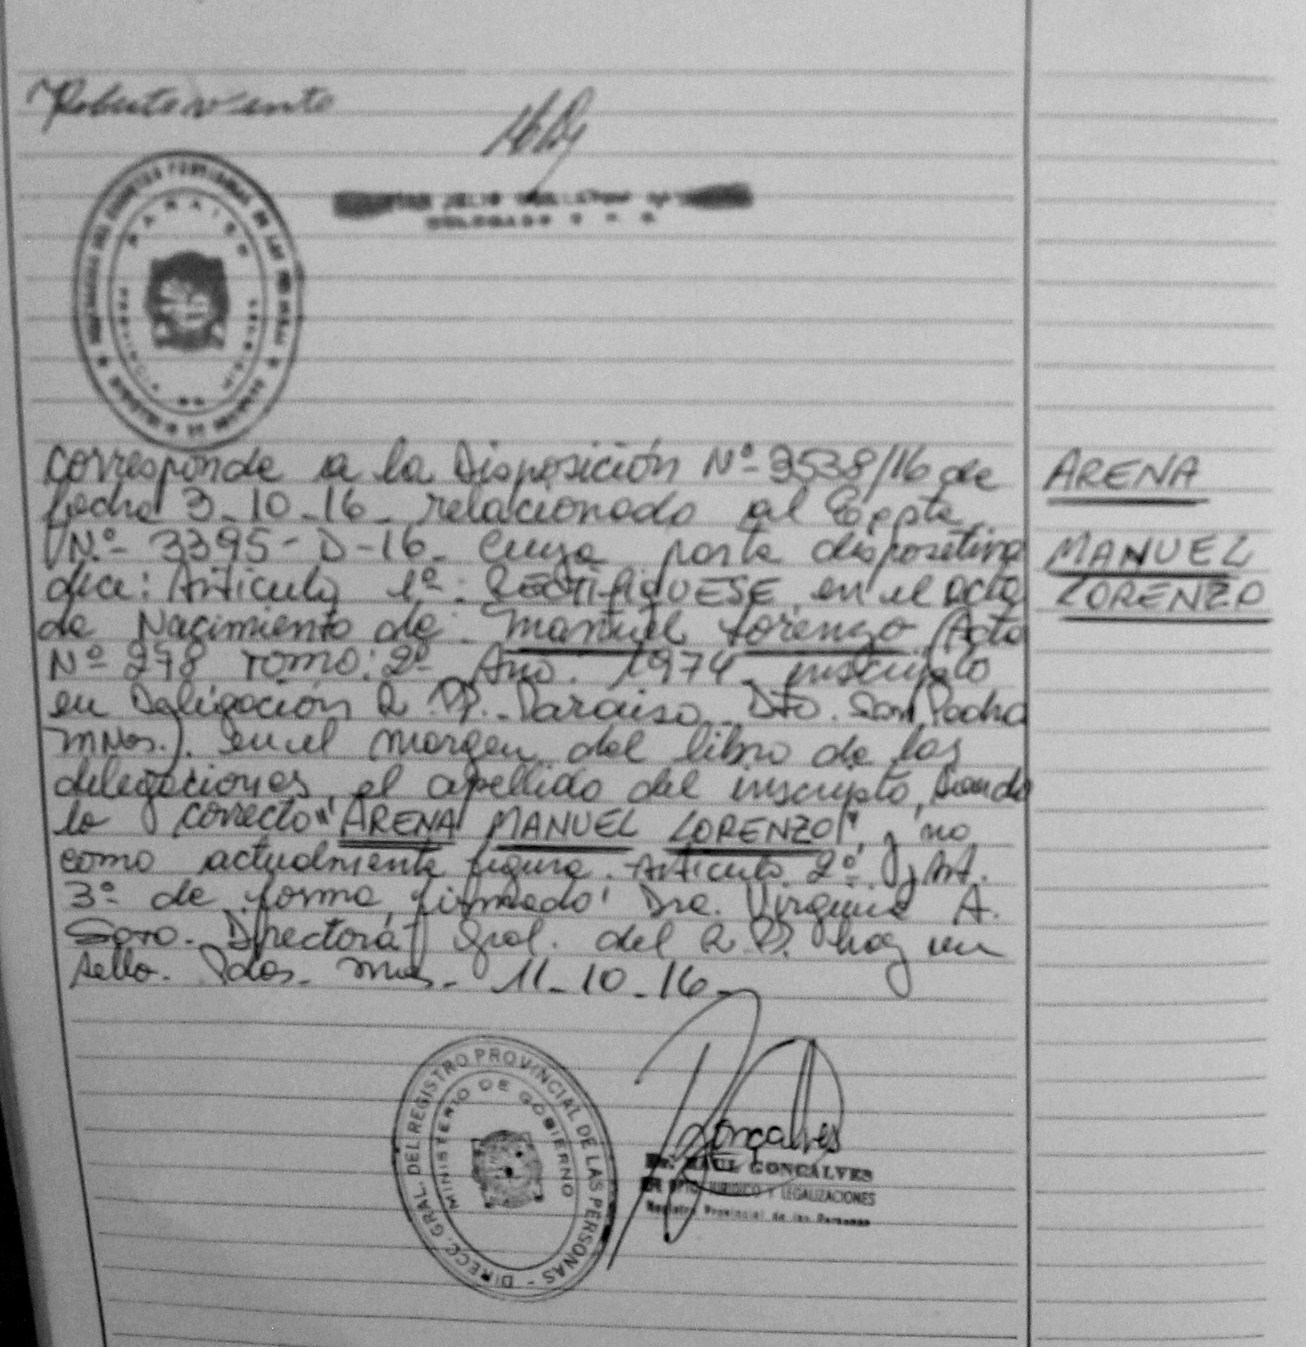 Roberto Vento
PARAISO
DELEGADO R. P. P.
Corresponde a la Disposición Nº 3538/16 de
fecha 3-10-16 relacionado al Eppte
Nº 3395-D-16. Cuya parte dispositiva
dice: Articulo 1º: RECTIFIQUESE en el acta
de Nacimiento de: Manuel Lorenzo (Acta
Nº 278 Tomo: 2º Año: 1974 inscripto
en Delegación R.P. Paraiso Dto. San Pedro
Mnes.). en el margen del libro de las
delegaciones el apellido del inscripto, siendo
lo correcto "ARENA MANUEL LORENZO", y no
como actualmente figura. Articulo 2º y Art.
3º de forma, firmado: Dra. Virginia A.
Soro. Directora Gral. del R.P. hay un
sello. Pdas. Mnes. 11-10-16
ARENA
MANUEL
LORENZO
DIRECC. GRAL. DEL REGISTRO PROVINCIAL DE LAS PERSONAS
MINISTERIO DE GOBIERNO
Gonçalves
Dr. RAUL GONCALVES
DPTO JURIDICO Y LEGALIZACIONES
Registro Provincial de las Personas